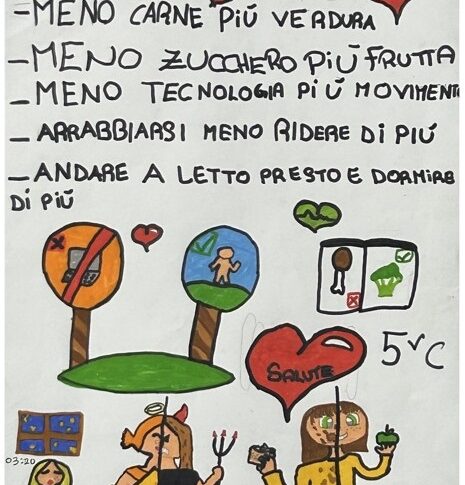 -MENO CARNE PIÙ VERDURA
-MENO ZUCCHERO PIÙ FRUTTA
-MENO TECNOLOGIA PIÙ MOVIMENTO
- ARRABBIARSI MENO RIDERE DI PIÙ
-ANDARE A LETTO PRESTO E DORMIRE
DI PIÙ
5^C
SALUTE
03:20